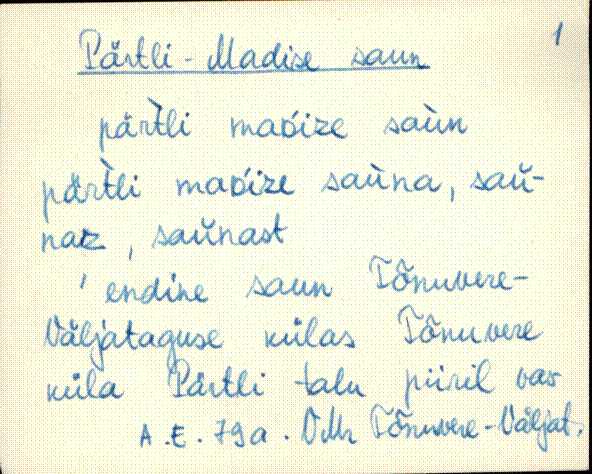 1
Pärtli-Madise saun
pär̀tĺi maɒ́ize saùn
pär̀tĺi maɒ́ize saùna, saŭ-
naz, saŭnast
endine saun Tõnuvere-
Väljataguse külas Tõnuvere
küla Pärtli talu piiril
A.E. 79a. VMr Tõnuvere-Väljat.